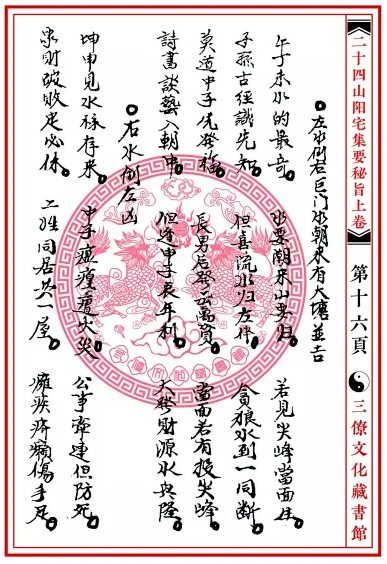 二十四山阳宅集要秘旨上卷
第十六頁
三僚文化藏書館
左水倒右巨门水朝來有大塘並吉
午子未水的最奇 水要朝来山要归 若見尖峰當面生
子孫古經識先知 但喜流水归左伴 貪狼水到一同断
莫道中子先發福 長男后發云萬資 當面若有投尖峰
詩書談藝入朝中 但逢申子辰年利 大發財源水兴隆
右水倒左凶
坤申見水禄存来 中子瘟遭火災 公事牵連但防死
家財破敗定必休 二姓同居共一屋 癱疾疥癩傷手足